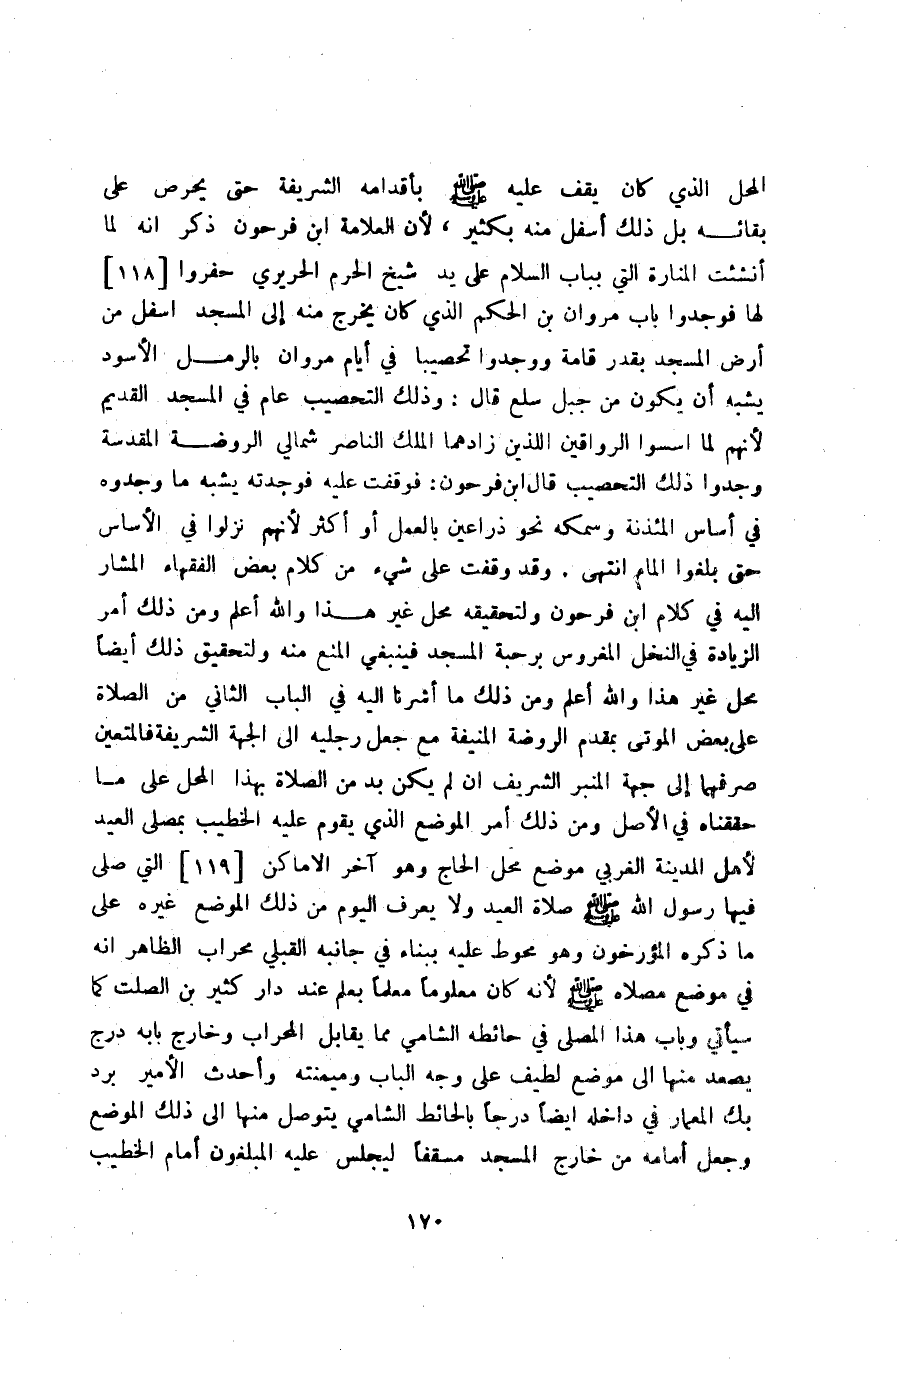 المحل الذي كان يقف عليه ﷺ بأقدامه الشريفة حتى يحرص على
بقائــه بل ذلك أسفل منه بكثير ، لأن العلامة ابن فرحون ذكر انه لما
أنشئت المنارة التي بباب السلام على يد شيخ الحرم الحريري حفروا [١١٨]
لها فوجدوا باب مروان بن الحكم الذي كان يخرج منه إلى المسجد اسفل من
أرض المسجد بقدر قامة ووجدوا تحصيبا في أيام مروان بالرمــل الأسود
يشبه أن يكون من جبل سلع قال : وذلك التحصيب عام في المسجد القديم
لأنهم لما اسسوا الرواقين اللذين زادهما الملك الناصر شمالي الروضــة المقدسة
وجدوا ذلك التحصيب قال ابن فرحون : فوقفت عليه فوجدته يشبه ما وجدوه
في أساس المئذنة وسمكه نحو ذراعين بالعمل أو أكثر لأنهم نزلوا في الأساس
حتى بلغوا الماء انتهى . وقد وقفت على شيء من كلام بعض الفقهاء المشار
اليه في كلام ابن فرحون ولتحقيقه محل غير هــذا والله أعلم ومن ذلك أمر
الزيادة في النخل المغروس برحبة المسجد فينبغي المنع منه ولتحقيق ذلك أيضاً
محل غير هذا والله أعلم ومن ذلك ما أشرنا اليه في الباب الثاني من الصلاة
على بعض الموتى بمقدم الروضة المنيفة مع جعل رجليه الى الجهة الشريفة فالمتعين
صرفها إلى جهة المنبر الشريف ان لم يكن بد من الصلاة بهذا المحل على مــا
حققناه في الأصل ومن ذلك أمر الموضع الذي يقوم عليه الخطيب بمصلى العيد
لأهل المدينة الغربي موضع محل الحاج وهو آخر الاماكن [١١٩] التي صلى
فيها رسول الله ﷺ صلاة العيد ولا يعرف اليوم من ذلك الموضع غيره على
ما ذكره المؤرخون وهو محوط عليه ببناء في جانبه القبلي محراب الظاهر انه
في موضع مصلاه ﷺ لأنه كان معلوماً معلماً بعلم عند دار كثير بن الصلت كما
سيأتي وباب هذا المصلى في حائطه الشامي مما يقابل المحراب وخارج بابه درج
يصعد منها الى موضع لطيف على وجه الباب وميمنته وأحدث الأمير برد
بك المعمار في داخله ايضاً درجاً بالحائط الشامي يتوصل منها الى ذلك الموضع
وجعل أمامه من خارج المسجد مسقفاً ليجلس عليه المبلغون أمام الخطيب
١٧٠